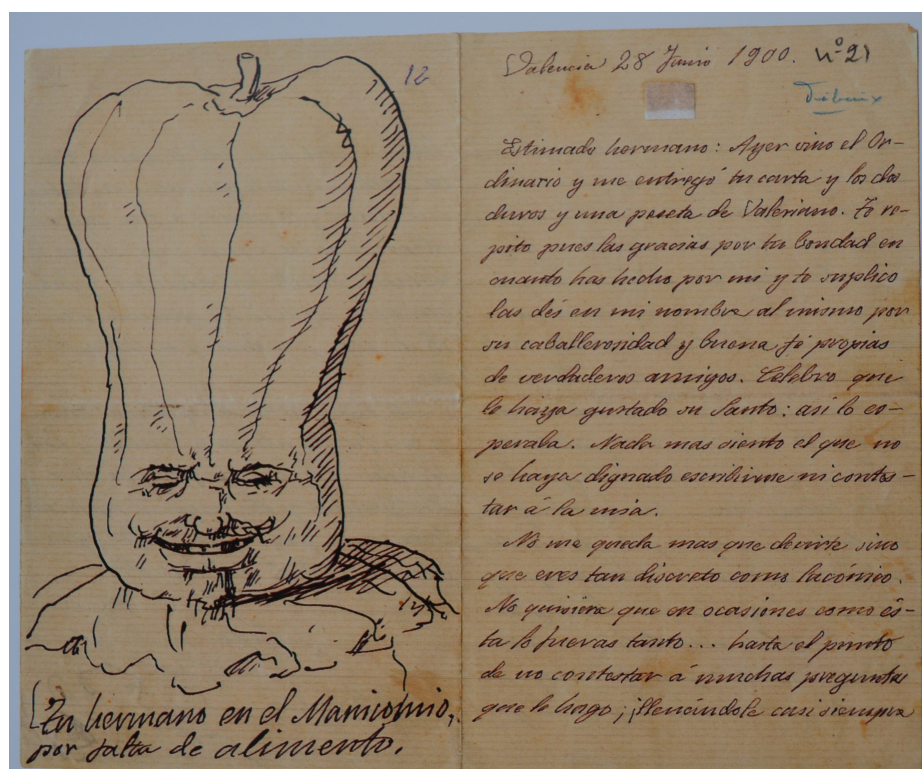 12
Tu hermano en el Manicomio,
por falta de alimento.
Valencia 28 Junio 1900. Nº 2)
Estimado hermano: Ayer vino el Or-
dinario y me entregó tu carta y los dos
duros y una peseta de Valeriano. Te re-
pito pues las gracias por tu bondad en
cuanto has hecho por mi y te suplico
las dés en mi nombre al mismo por
su caballerosidad y buena fé propias
de verdaderos amigos. Celebro que
le haya gustado su Santo: asi lo es-
peraba. Nada mas siento el que no
se haya dignado escribirme ni contes-
tar á la mia.
No me queda mas que decirte sino
que eres tan discreto como lacónico.
No quisiera que en ocasiones como és-
ta lo fueras tanto... hasta el punto
de no contestar á muchas preguntas
que te hago; ¡llenándole casi siempre